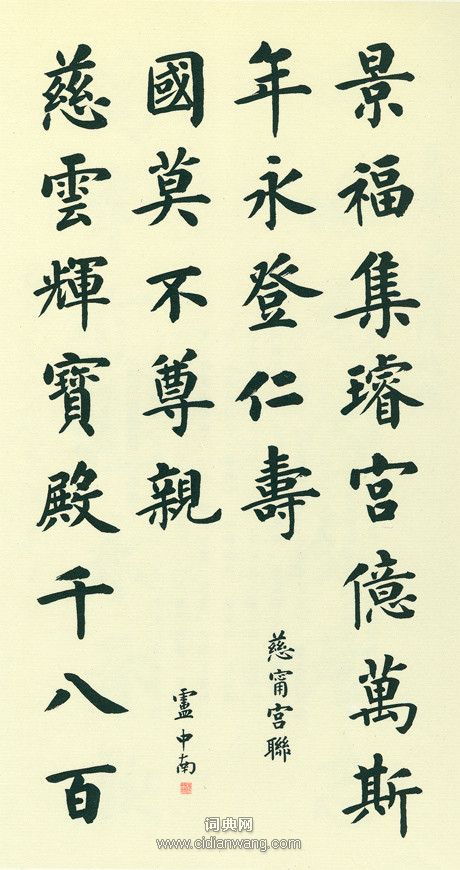 景福集璿宮億萬斯
年永登仁壽
慈甯宮聯
慈雲輝寶殿千八百
國莫不尊親
盧中南
词典网
www.cidianwang.com